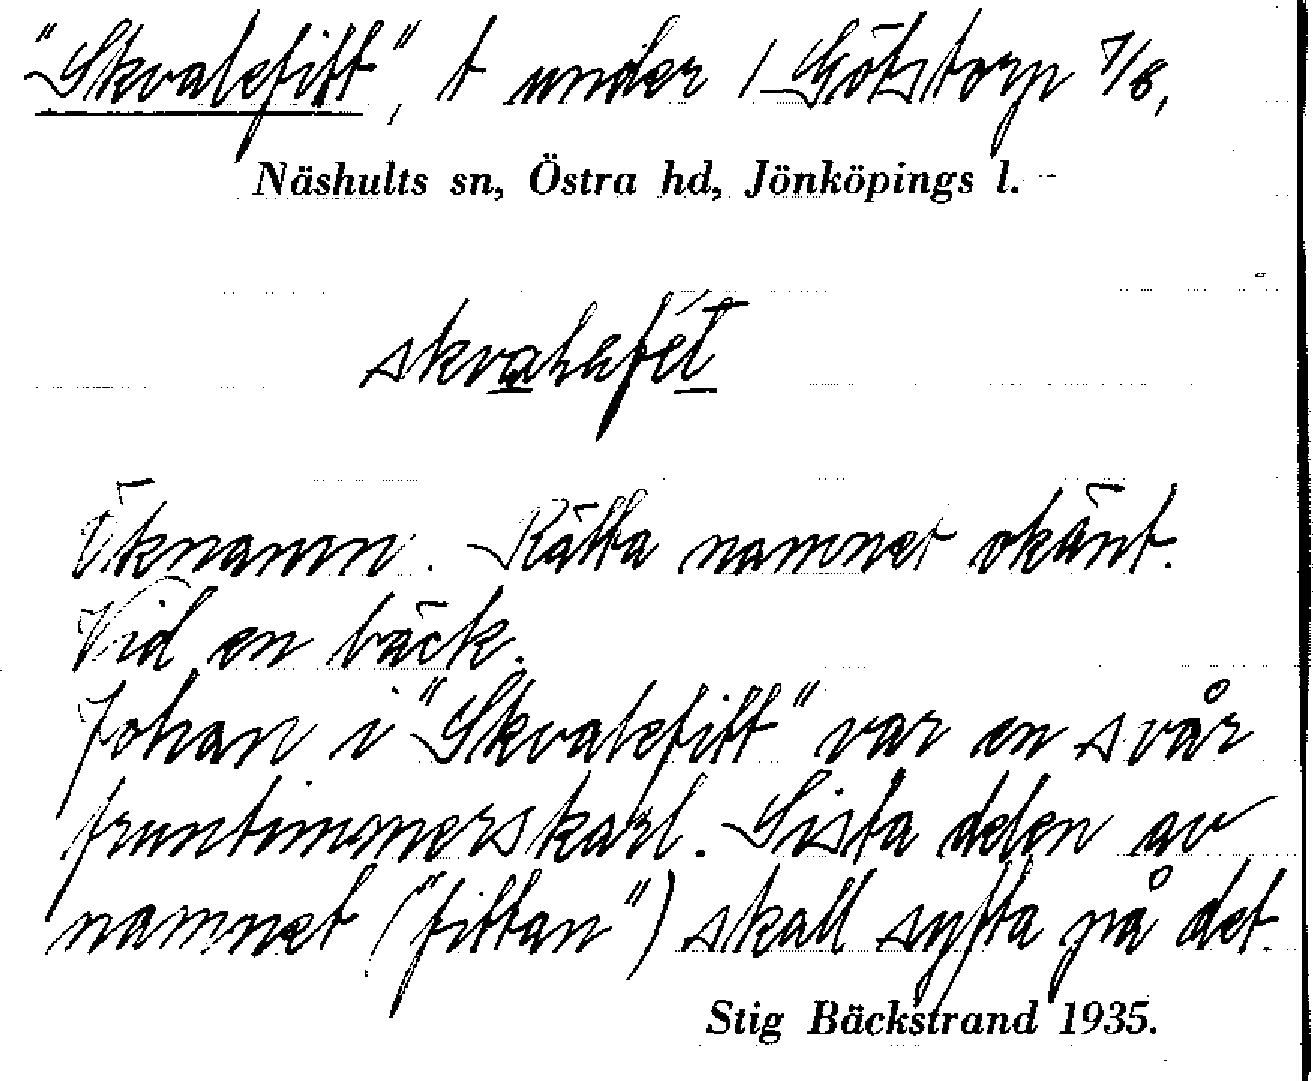 "Skvalefitt", t under 1 Götstorp 7/8,
Näshults sn, Östra hd, Jönköpings l.
Öknamn. Rätta namnet okänt.
Vid en bäck.
Johan i "Skvalefitt" var en svår
fruntimmerskarl. Sista delen av
namnet ("fittan") skall syfta på det.
Stig Bäckstrand 1935.